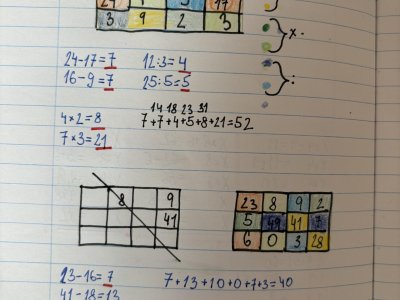 24 17
3 9 2 3
x.
:
24-17=7 12:3=4
16-9=7 25:5=5
14 18 23 31
4×2=8 7+7+4+5+8+21=52
7×3=21
8 9
41
23 8 9 2
5 49 41 7
6 0 3 28
23-16=7 7+13+10+0+7+3=40
41-18=13